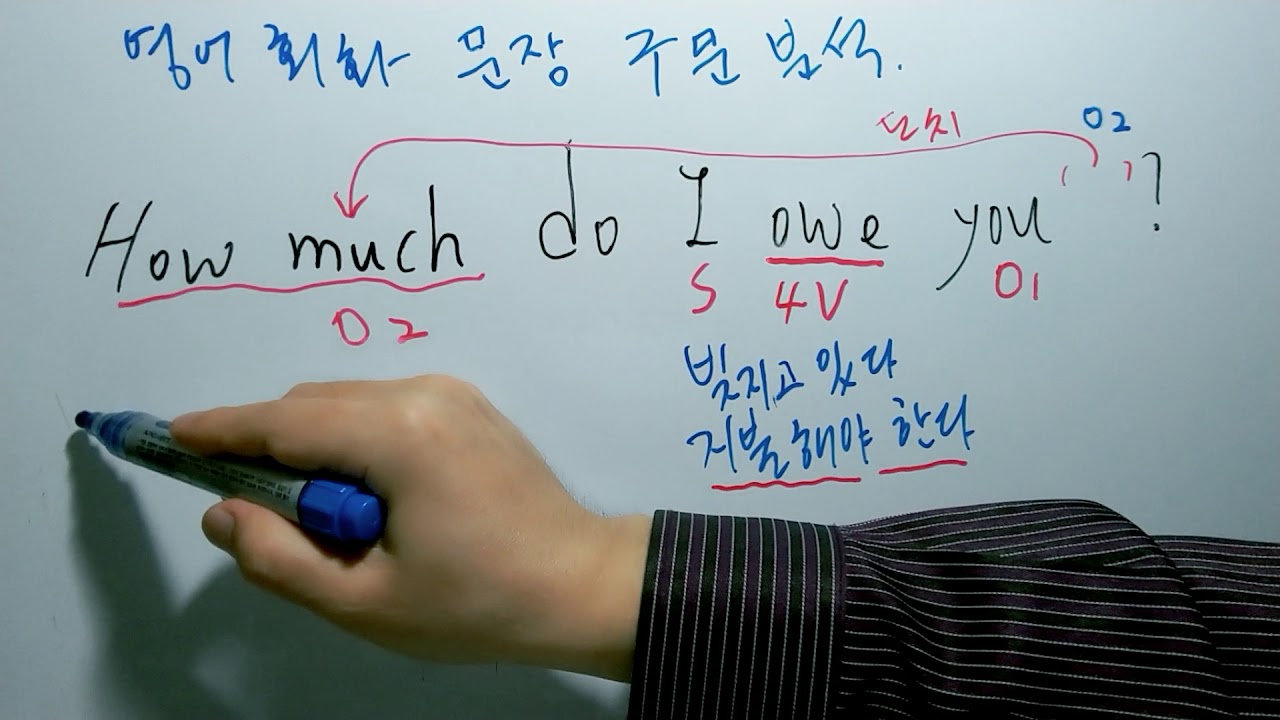 영어 회화 문장 구문 분석.
도치 O2
How much do I owe you ( )?
O2 S 4V O1
빚지고 있다
지불해야 한다